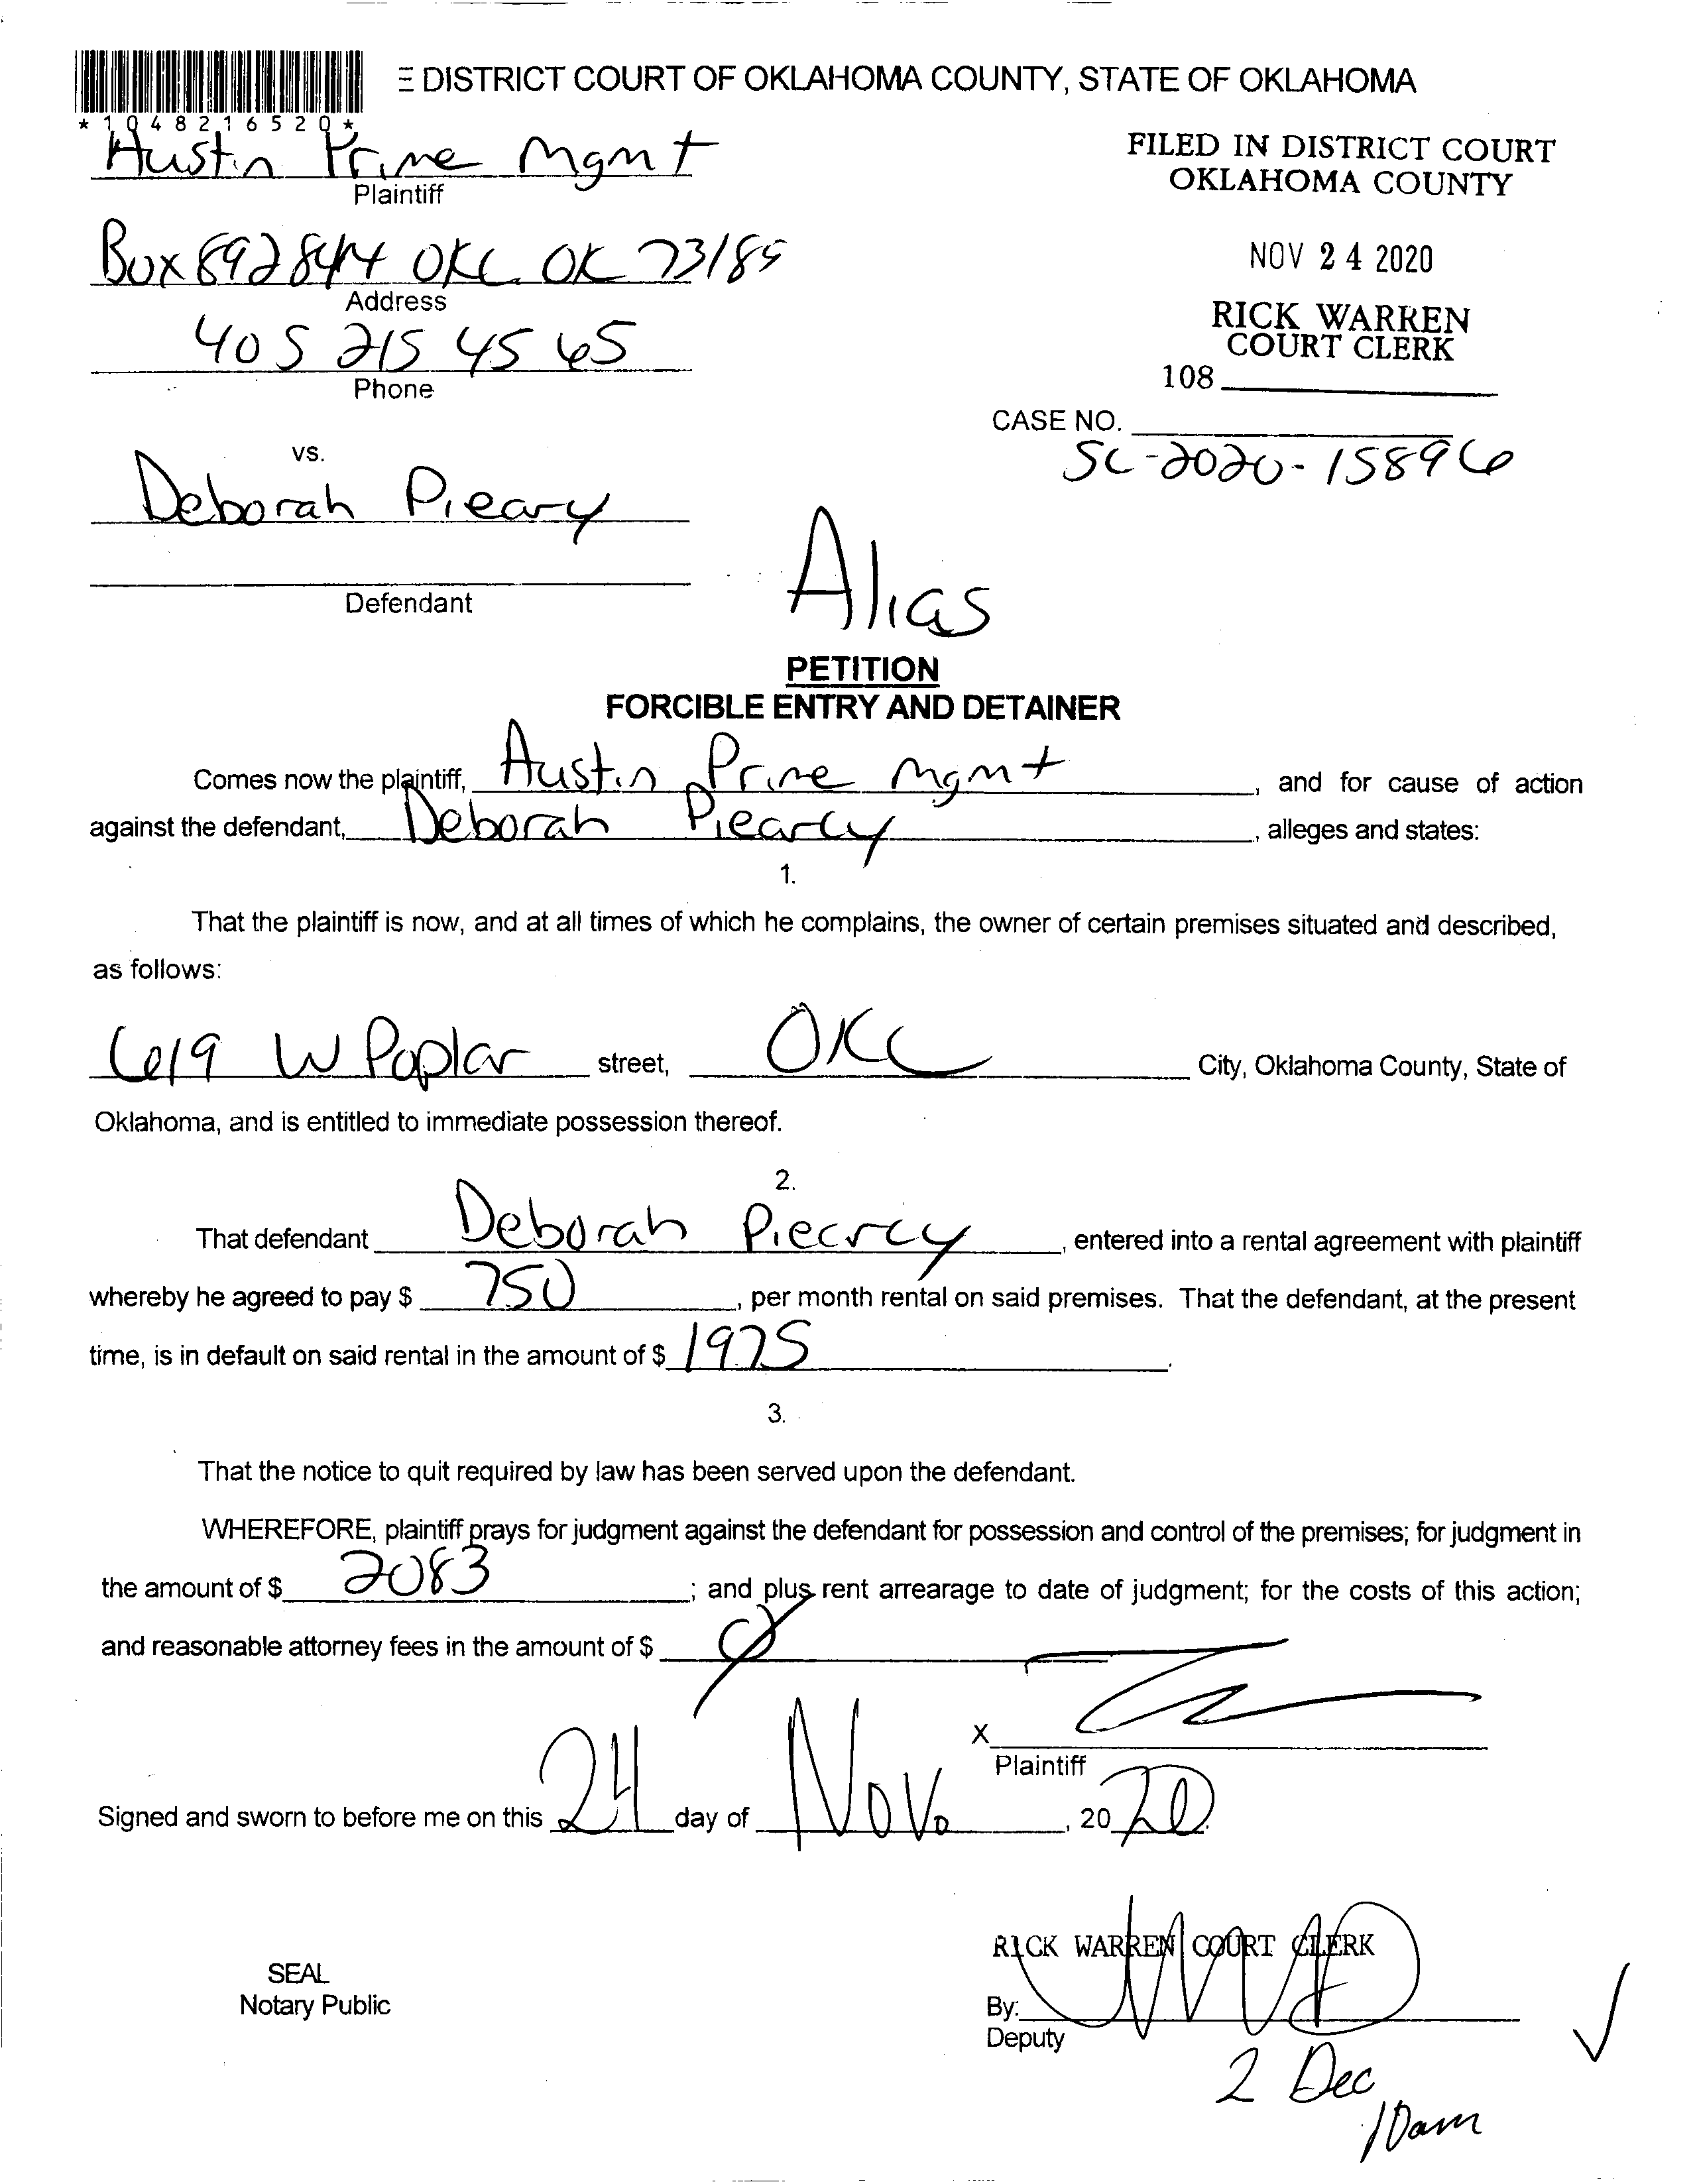 DISTRICT COURT OF OKLAHOMA COUNTY, STATE OF OKLAHOMA
* 1 0 4 8 2 1 6 5 2 0 *
Austin Prime Mgmt
Plaintiff
FILED IN DISTRICT COURT
OKLAHOMA COUNTY
Box 892844 OKC OK 73189
Address
NOV 24 2020
405 215 4565
Phone
RICK WARREN
COURT CLERK
108
CASE NO.
SC-2020-15896
vs.
Deborah Pieary
Defendant
Alias
PETITION
FORCIBLE ENTRY AND DETAINER
Comes now the plaintiff, Austin Prime Mgmt, and for cause of action
against the defendant, Deborah Piearcy, alleges and states:
1.
That the plaintiff is now, and at all times of which he complains, the owner of certain premises situated and described,
as follows:
619 W Poplar street, OKC City, Oklahoma County, State of
Oklahoma, and is entitled to immediate possession thereof.
2.
That defendant Deborah Piearcy, entered into a rental agreement with plaintiff
whereby he agreed to pay $ 750, per month rental on said premises. That the defendant, at the present
time, is in default on said rental in the amount of $ 1975.
3.
That the notice to quit required by law has been served upon the defendant.
WHEREFORE, plaintiff prays for judgment against the defendant for possession and control of the premises; for judgment in
the amount of $ 2083; and plus rent arrearage to date of judgment; for the costs of this action;
and reasonable attorney fees in the amount of $ 0
X
Plaintiff
Signed and sworn to before me on this 24 day of Nov., 20 20.
RICK WARREN COURT CLERK
SEAL
Notary Public
By:
Deputy
2 Dec
10am